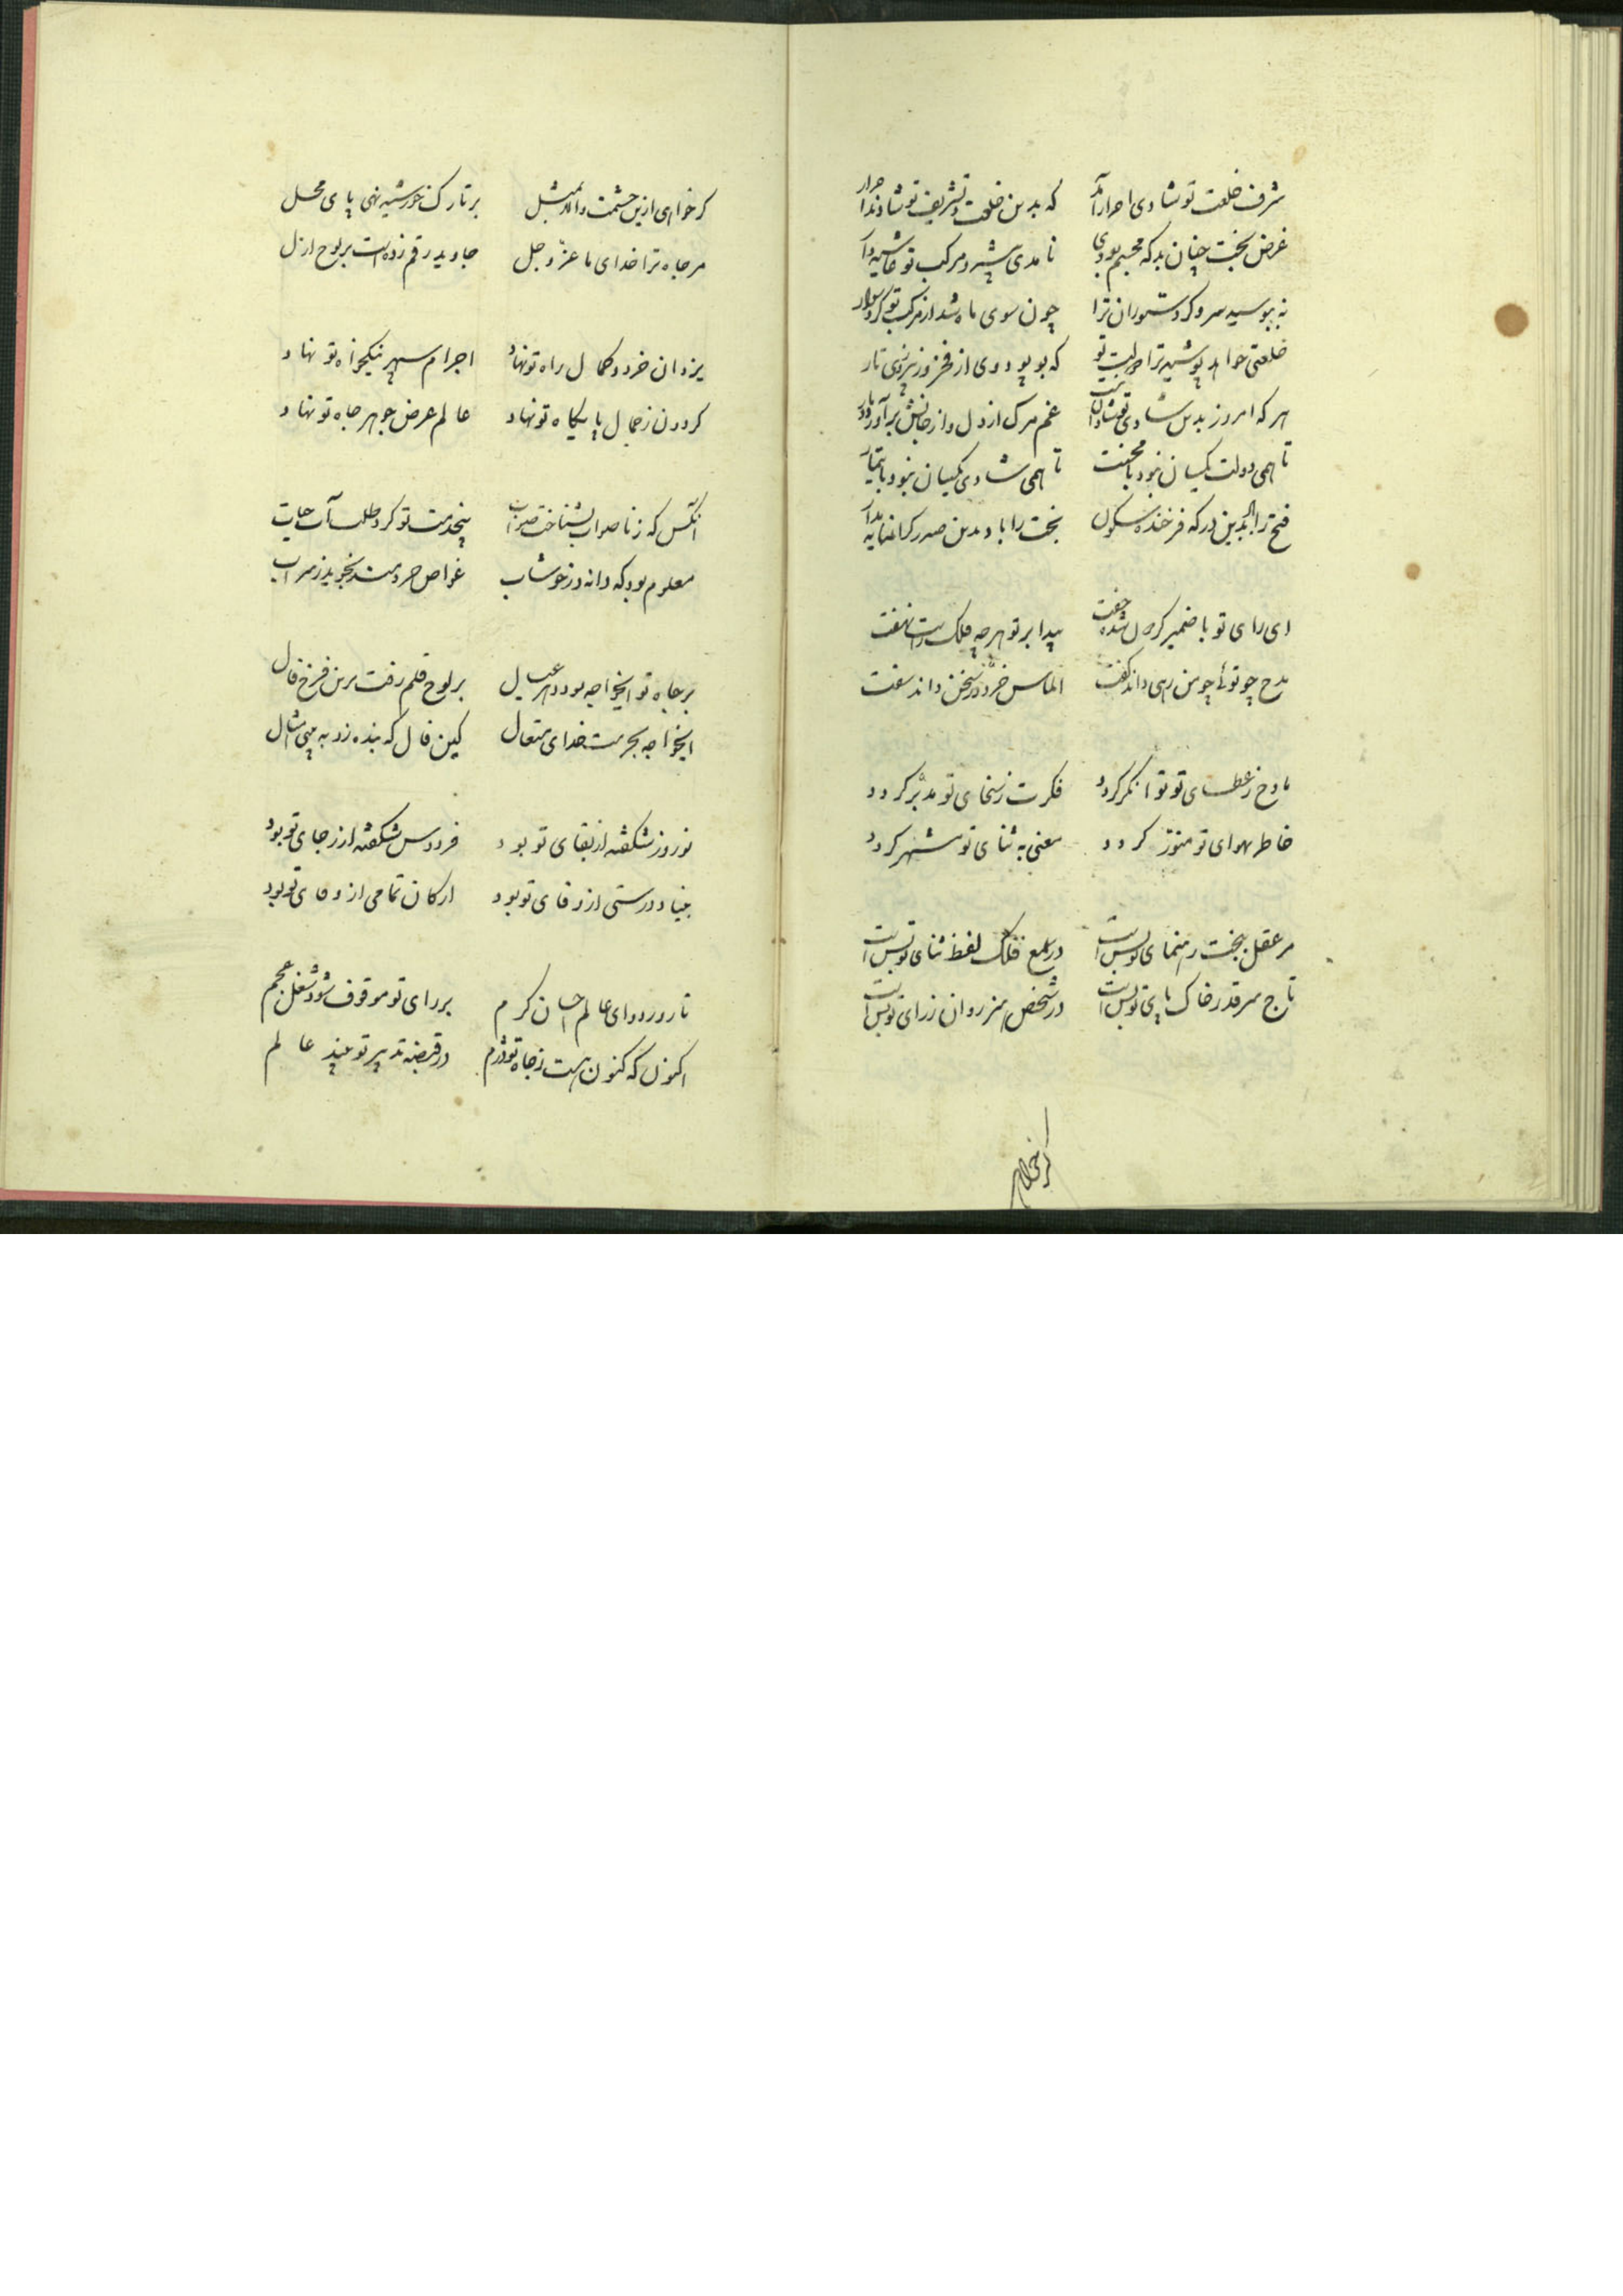 شرف خلعت تو شادی احرار آمد که بدین خلعت و تشریف تو شادند احرار
غرض بخت چنان بد که مجسم بودی تا مدی پیش رو مرکب تو غاشیه‌دار
نه ببوسید سرو کرد ستوران ترا چون سوی ماه شد از مرکب تو کرد سوار
خلعتی خواهد پوشید ترا دولت تو که بود پود وی از فخر وز پیروزی تار
هر که امروز بدین شادی تو شادان نیست غم مرک از دل و از جانش برآورد دمار
تا همی دولت یکسان نبود با محنت تا همی شادی یکسان نبود با تیمار
فتح را باد بدین درکه فرخنده سکون بخت را باد بدین صدر کرانمایه مدار
ای رای تو با ضمیر کردون شده جفت پیدا بر تو هرچه فلک راست نهفت
مدح چو توئی چو من رهی داند گفت الماس خرد در سخن داند سفت
مادح ز عطای تو توانگر کردد فکرت ز سخای تو مدبر کردد
خاطر بهوای تو منور کردد معنی به ثنای تو مشهر کردد
مر عقل ببخت رهنمای تو بس است در سمع فلک لفظ ثنای تو بس است
تاج سر قدر خاک پای تو بس است در شخص هنر روان ز رای تو بس است
کر خواهی
کر خواهی ازین حشمت و بر تارک خورشید نهی پای محل
مر جاه ترا خدای ما عز و جل جاوید رقم زده است بر لوح ازل
یزدان خرد و کمال راه تو نهاد اجرام سپهر نیکخواه تو نهاد
کردون ز جمال پایکاه تو نهاد عالم عرض جوهر جاه تو نهاد
انکس که ز ناصواب بشناخت صواب بیخدمت تو کرد طلب آب حیات
معلوم بود که دانه در خوشاب غواص خردمند نجوید ز سراب
بر جاه تو ایخواجه بود دهر عیال بر لوح قلم رفت برین فرخ فال
ایخواجه بحرمت خدای متعال کین فال که بنده زد ببینی امسال
نوروز شکفته از بقای تو بود فردوس شکفته از رجای تو بود
بنیاد درستی از وفای تو بود ارکان تمامی از وفای تو بود
تا روز دو ای عالم احسان کرم بر رای تو موقوف شود شغل عجم
اکنون که کنون هست ز جاه تو درم در قبضه تدبیر تو عالم